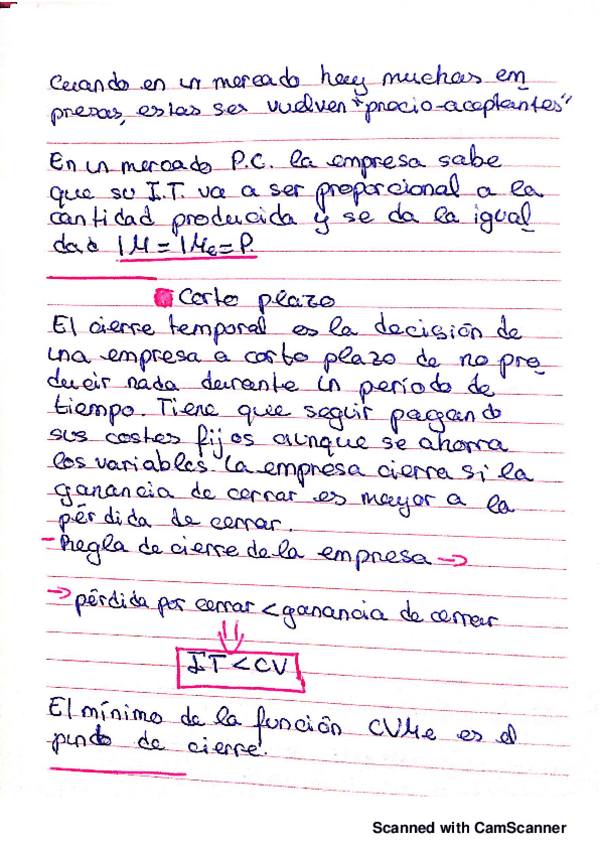 Cuando en un mercado hay muchas em
presas, estas ser vuelven "precio-aceptantes"
En un mercado P.C. la empresa sabe
que su I.T. va a ser proporcional a la
cantidad producida y se da la igual
dad IM = IMe = P.
Corto plazo
El cierre temporal es la decisión de
una empresa a corto plazo de no pro
ducir nada durante un período de
tiempo. Tiene que seguir pagando
sus costes fijos aunque se ahorra
los variables. La empresa cierra si la
ganancia de cerrar es mayor a la
pérdida de cerrar.
- Regla de cierre de la empresa →
→ pérdida por cerrar < ganancia de cerrar
⇓
IT < CV
El mínimo de la función CVMe es el
punto de cierre.
Scanned with CamScanner